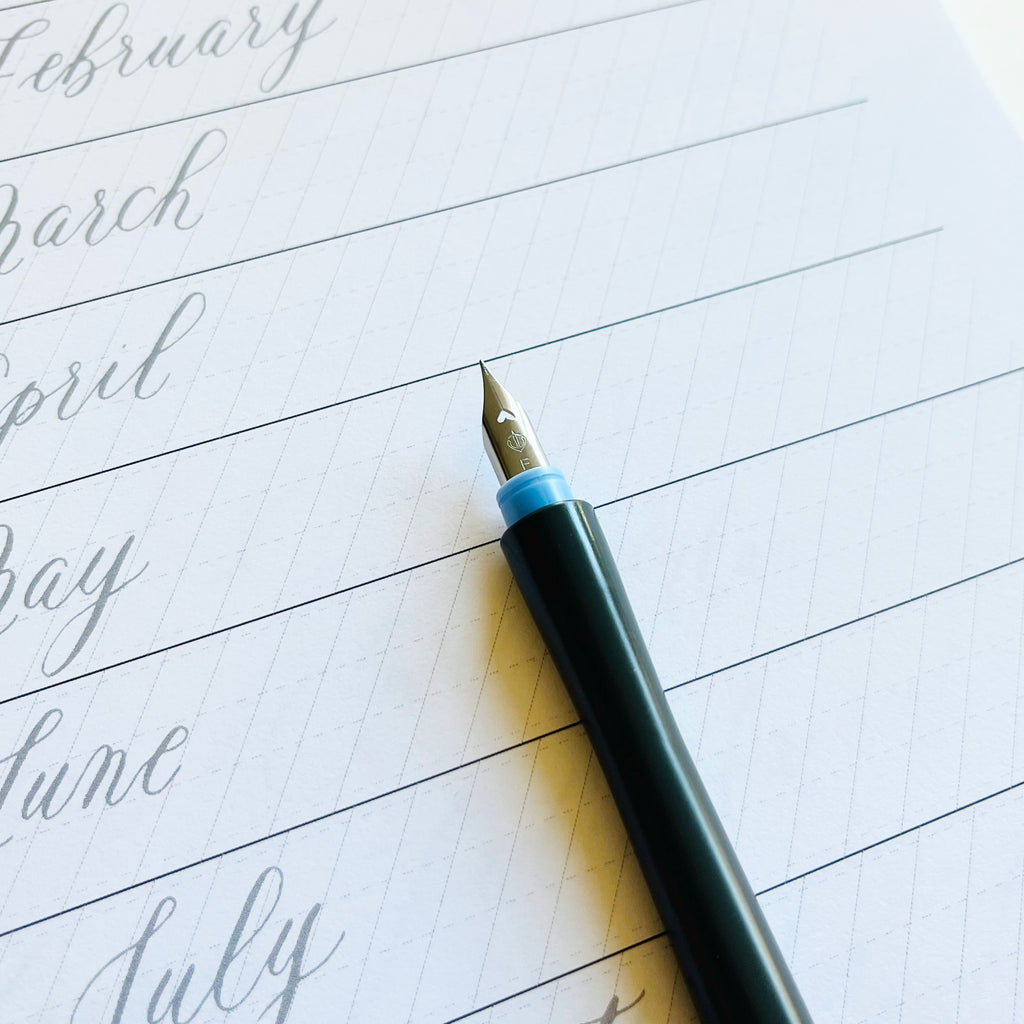 February
March
April
May
June
July